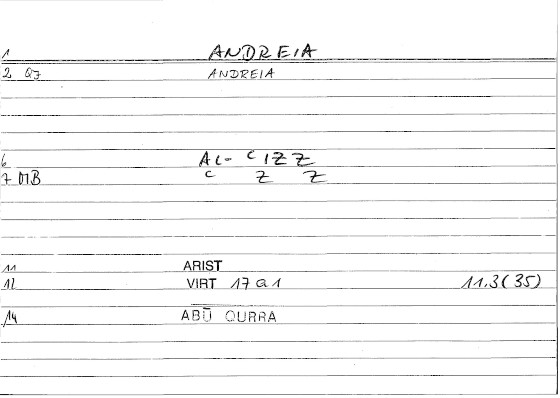 1 ANDREIA
2 QJ ANDREIA
6 AL- ᶜIZZ
7 MB ᶜ Z Z
11 ARIST
12 VIRT 17 a 1 11.3(35)
14 ABŪ QURRA